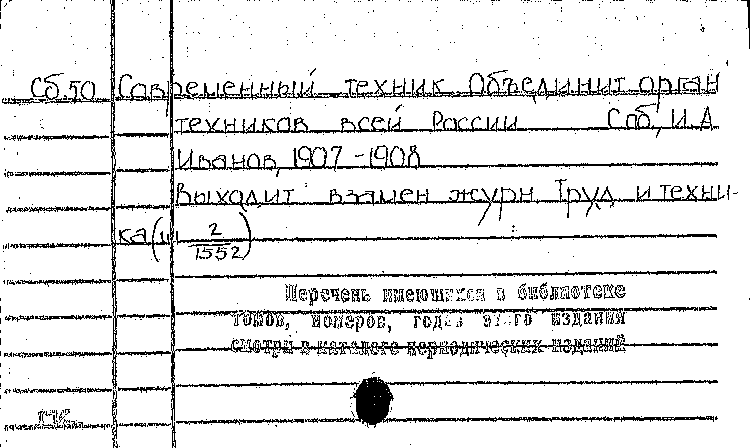 Сб.50 Современный техник. Объединит. орган
техников всей России Спб., И.А
Иванов, 1907-1908
Выходит взамен журн. Труд и техни-
ка ( 2/1552)
Перечень имеющихся в библиотеке
томов, номеров, годов этого издания
смотри в каталоге периодических изданий